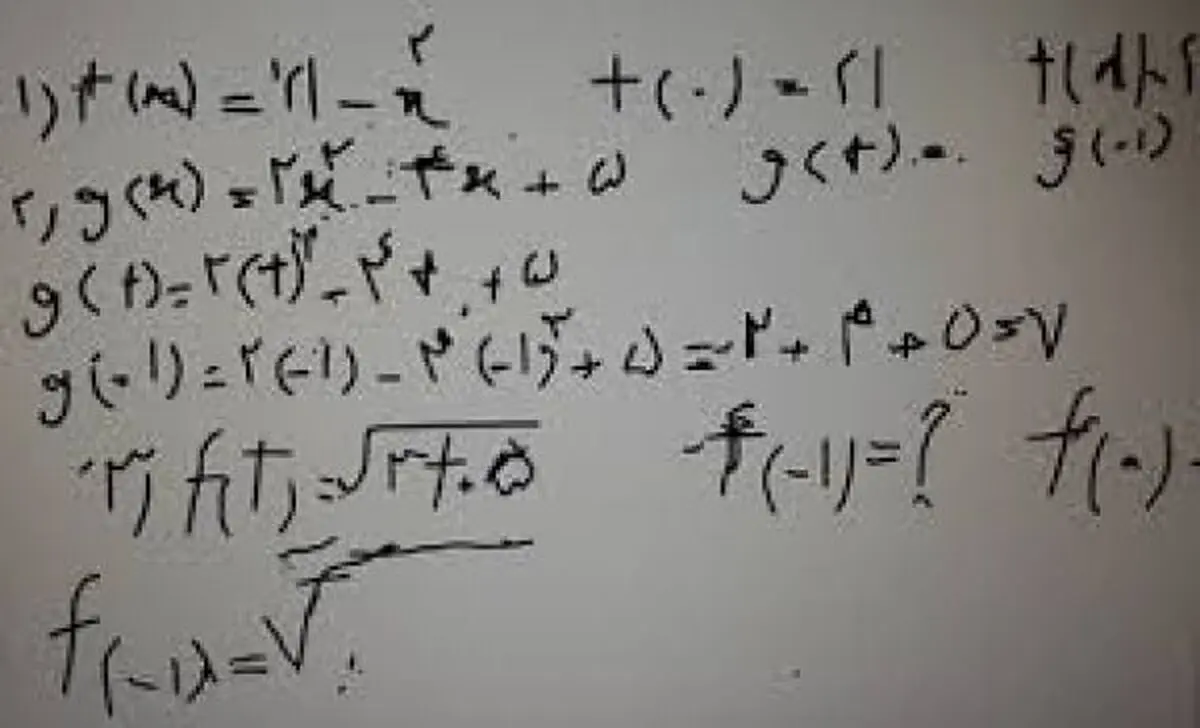 ۱) f(x) = ۲۱ - x^۲    f(۰) = ۲۱
۲) g(x) = ۲x^۲ - ۴x + ۵    g(t) =    g(-۱)
g(t) = ۲(t)^۲ - ۴t + ۵
g(-۱) = ۲(-۱) - ۴(-۱)^۲ + ۵ = ۲ + ۴ + ۵ = ۷
۳) f(t) = √    f(-۱) = ?    f(۰)
f(-۱) = √